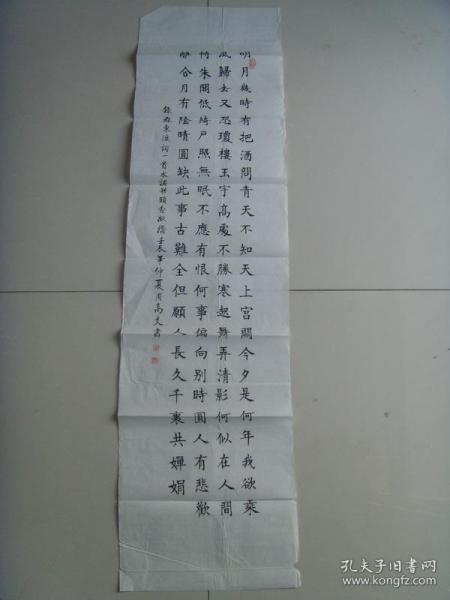 明月幾時有把酒問青天不知天上宮闕今夕是何年我欲乘
風歸去又恐瓊樓玉宇高處不勝寒起舞弄清影何似在人間
轉朱閣低綺戶照無眠不應有恨何事偏向別時圓人有悲歡
離合月有陰晴圓缺此事古難全但願人長久千里共嬋娟
錄蘇東坡詞一首水調歌頭 壬辰年仲夏 高 書
孔夫子旧书网
www.kongfz.com